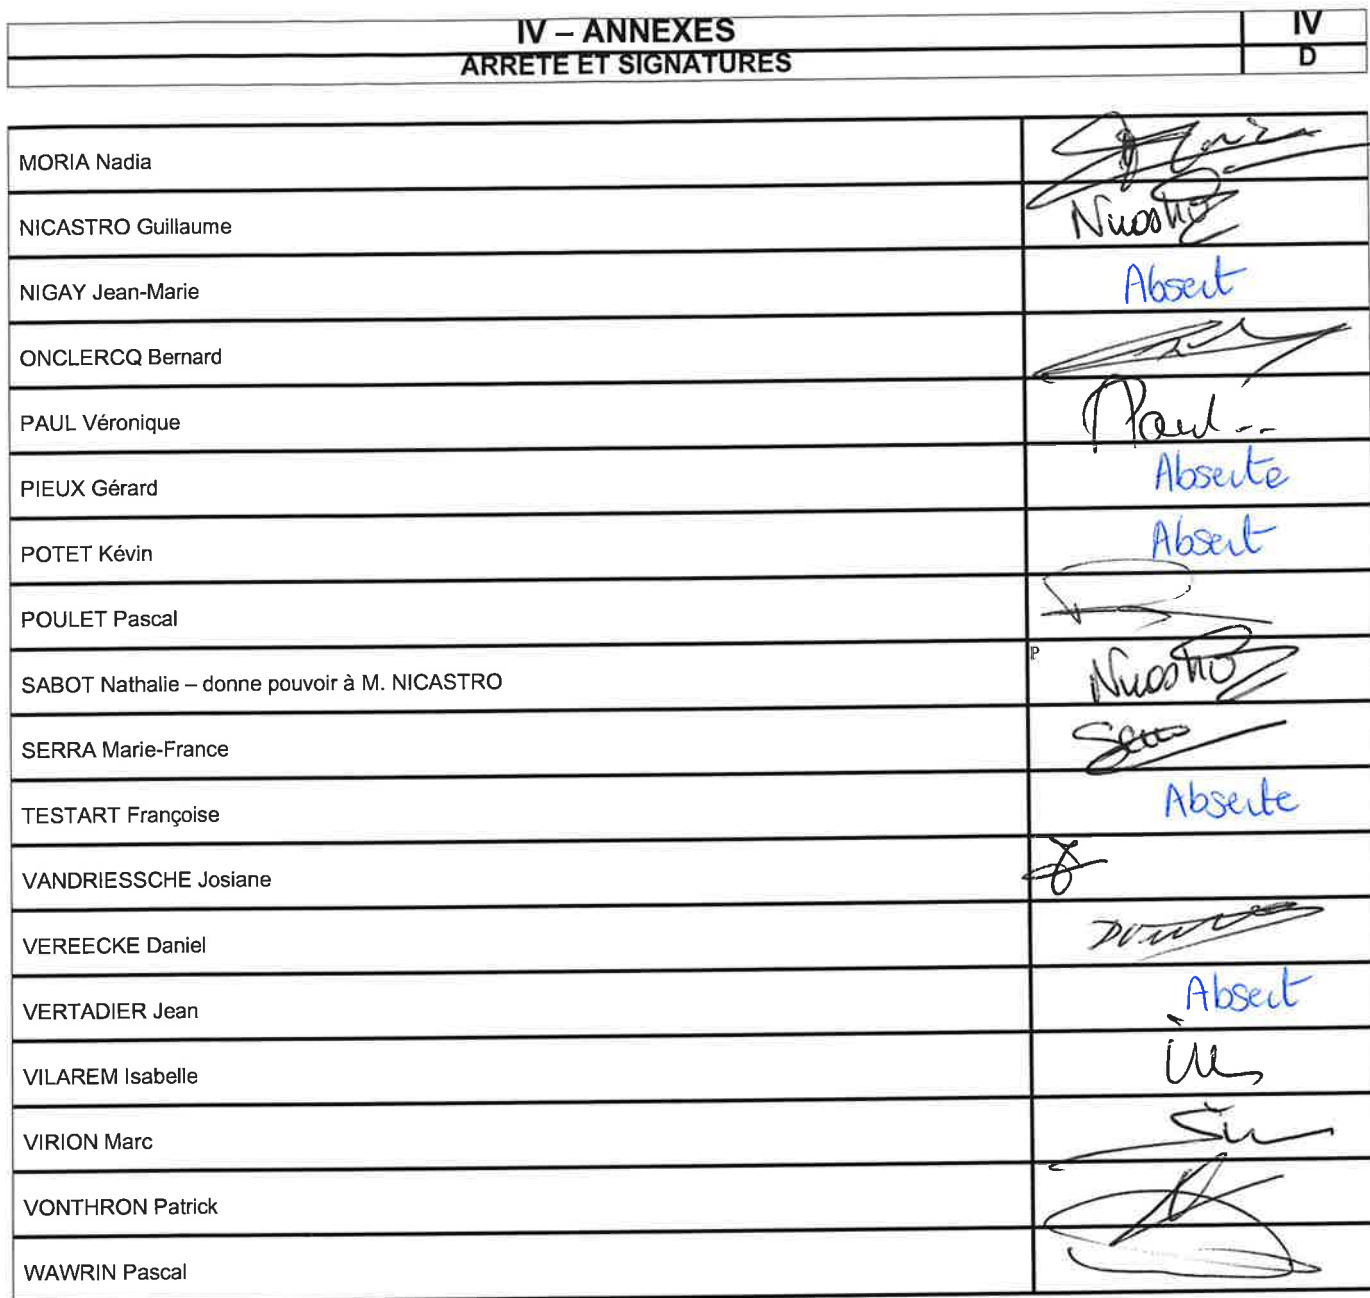 IV – ANNEXES
IV
ARRETE ET SIGNATURES
D
MORIA Nadia
NICASTRO Guillaume
Nicastro
NIGAY Jean-Marie
Absent
ONCLERCQ Bernard
PAUL Véronique
Paul
PIEUX Gérard
Absente
POTET Kévin
Absent
POULET Pascal
SABOT Nathalie – donne pouvoir à M. NICASTRO
P
Nicastro
SERRA Marie-France
TESTART Françoise
Absente
VANDRIESSCHE Josiane
VEREECKE Daniel
VERTADIER Jean
Absent
VILAREM Isabelle
VIRION Marc
VONTHRON Patrick
WAWRIN Pascal